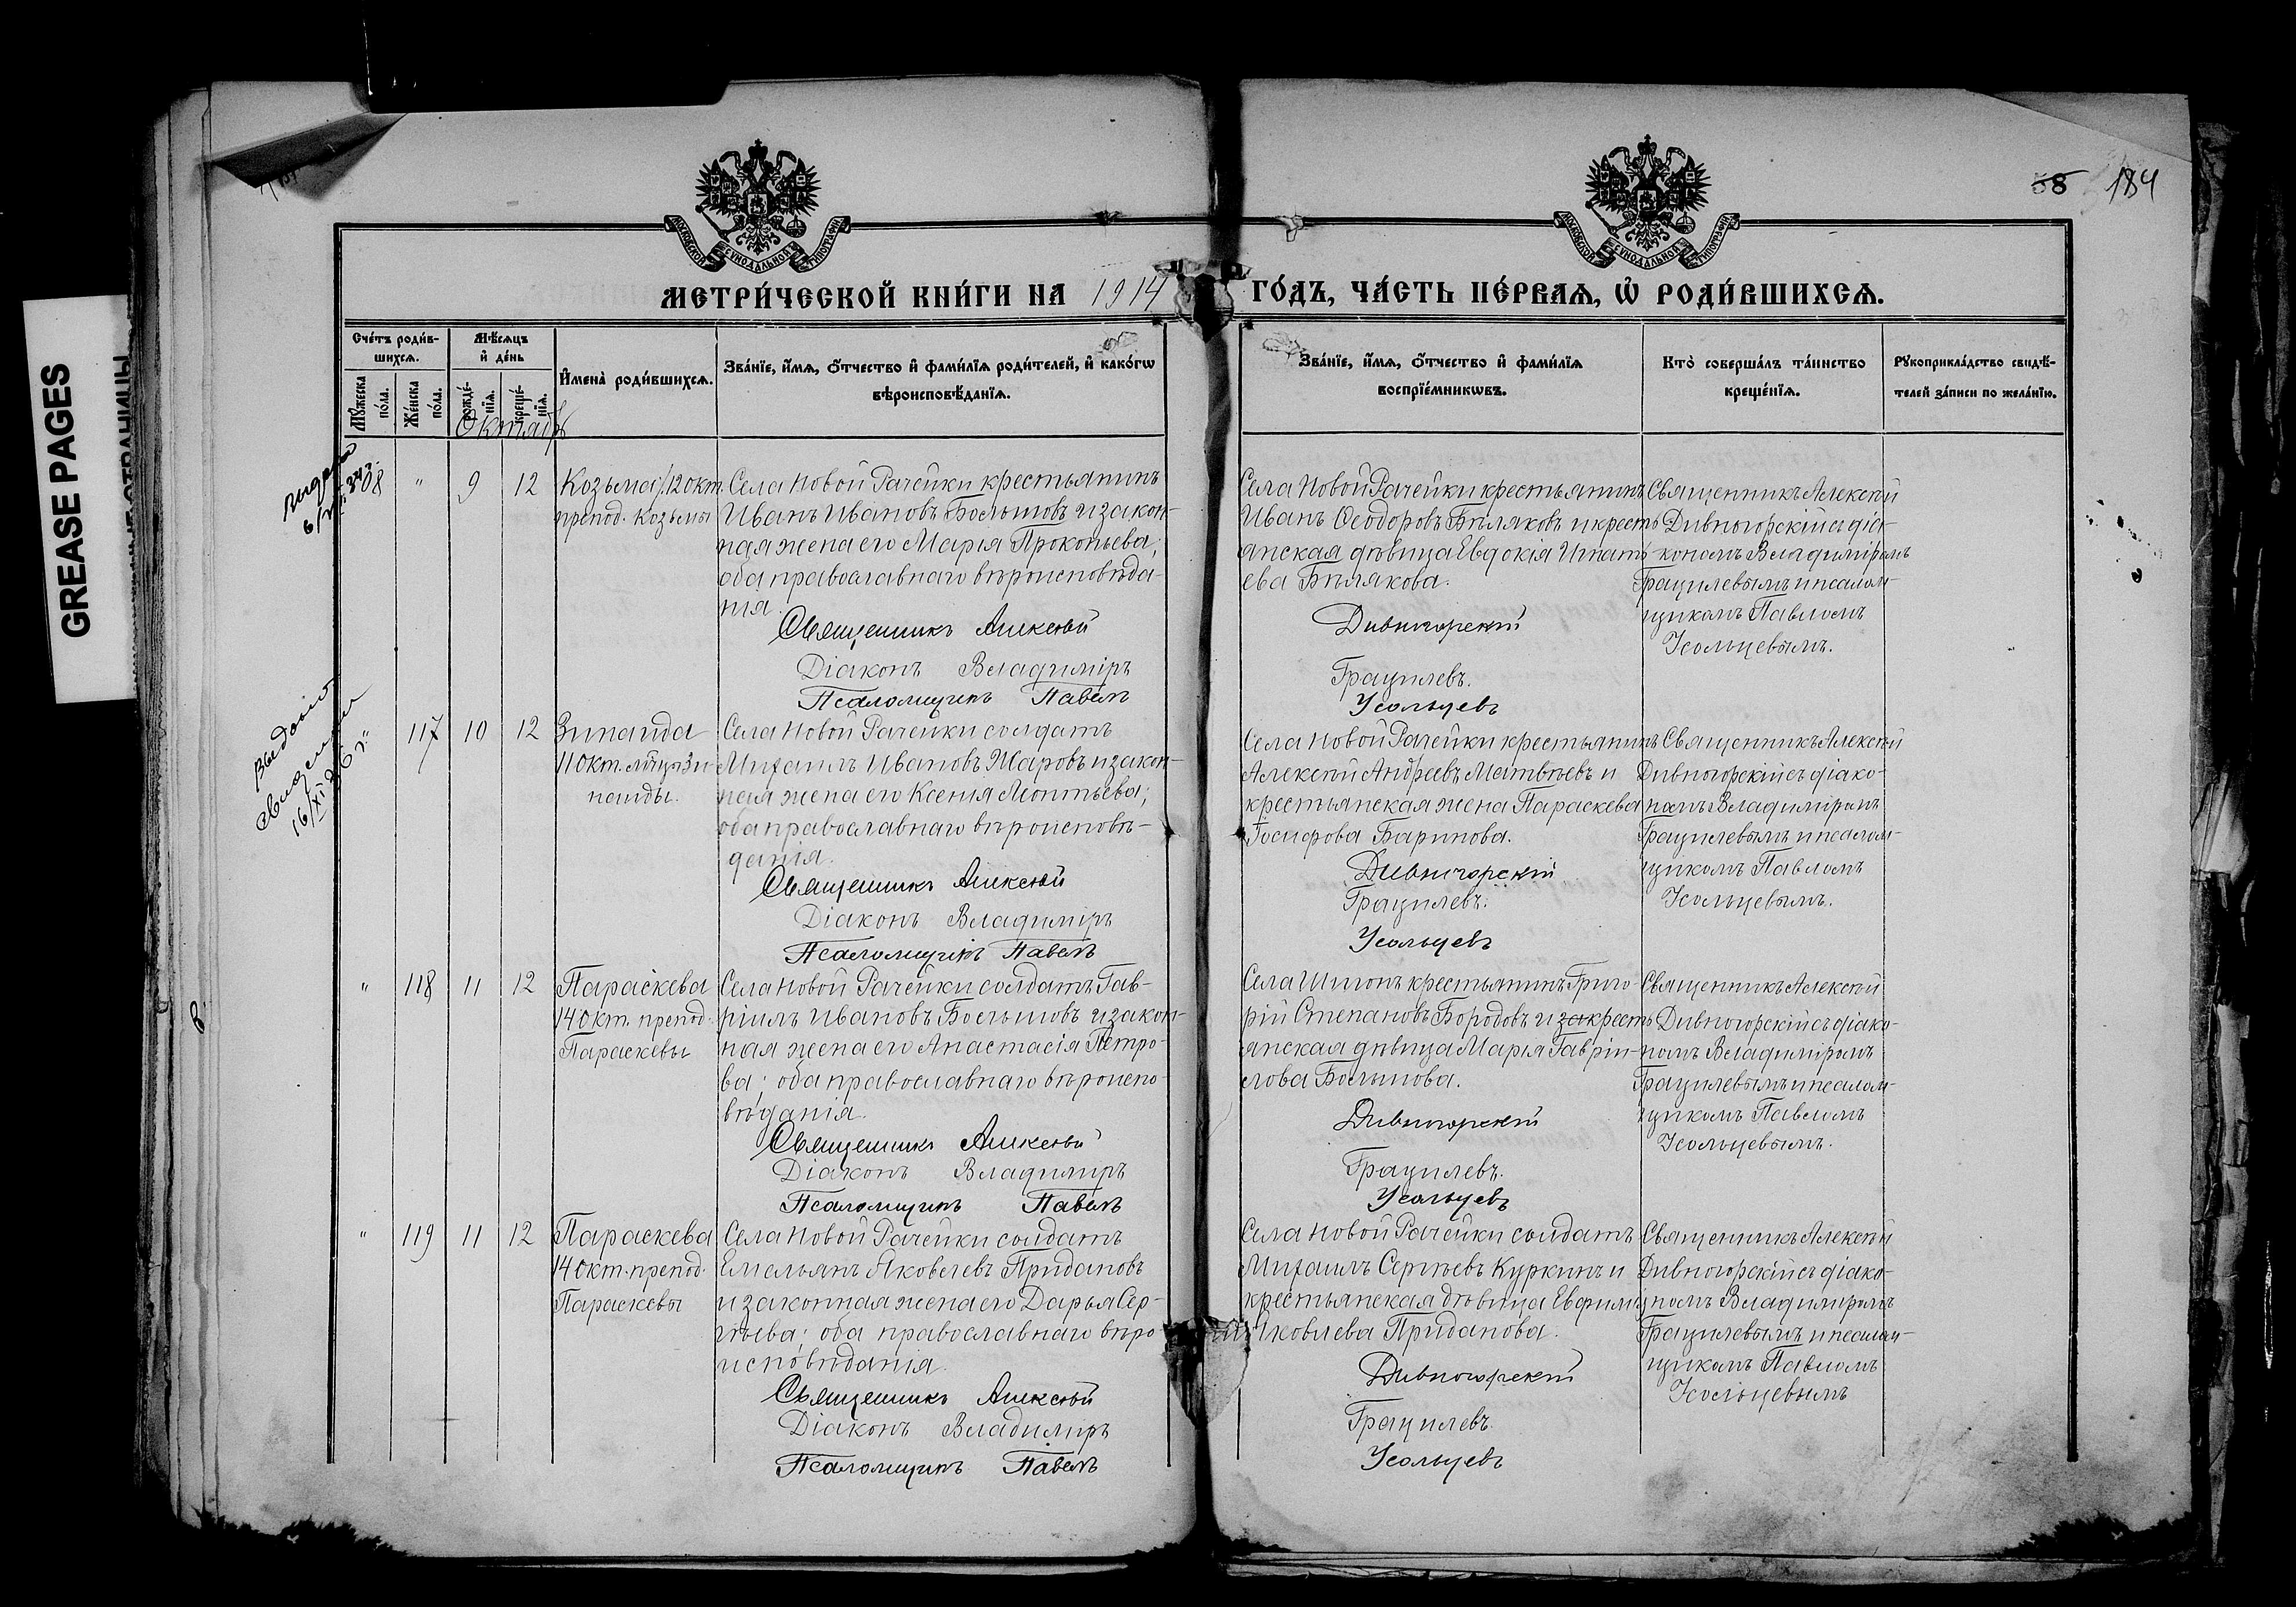 GREASE PAGES
58 184
МЕТРИ́ЧЕСКОЙ КНИ́ГИ НА 1914 ГО́ДЪ, ЧА́СТЬ ПЕ́РВАѦ, Ѡ҆ РОДИ́ВШИХСѦ.
Сче́тъ роди́в-
шихсѧ.
Мꙋ́жеска по́ла.
Же́нска по́ла.
Мѣ́сѧцъ
и҆ де́нь
рожде́-
нїѧ.
креще́-
нїѧ.
И҆мена̀ роди́вшихсѧ.
Зва́нїе, и҆́мѧ, ѻ҆́тчество и҆ фами́лїѧ роди́телей, и҆ како́гѡ
вѣроисповѣ́данїѧ.
Зва́нїе, и҆́мѧ, ѻ҆́тчество и҆ фами́лїѧ
воспрїе́мникѡвъ.
Кто̀ соверша́лъ та́инство
креще́нїѧ.
Рꙋкоприкла́дство свидѣ́-
телей за́писи по жела́нїю.
Октябрь
108 " 9 12
Козьма /12 окт.
препод. Козьмы
Села Новой Рачейки крестьянинъ
Иванъ Ивановъ Большовъ и закон-
ная жена его Марія Прокопьева;
оба православнаго вѣроисповѣда-
нія.
Священникъ Алексѣй
Діаконъ Владиміръ
Псаломщикъ Павелъ
Села Новой Рачейки крестьянинъ
Иванъ Ѳеодоровъ Бѣляковъ и кресть-
янская дѣвица Евдокія Игнать-
ева Бѣлякова.
Дивногорскій
Грацилевъ.
Усольцевъ
Священникъ Алексѣй
Дивногорскій съ діа-
кономъ Владиміромъ
Грацилевымъ и псалом-
щикомъ Павломъ
Усольцевымъ.
выдано
свидѣт.
117 10 12
Зинаида
11 окт. мцы Зи-
наиды.
Села Новой Рачейки солдатъ
Михаилъ Ивановъ Жаровъ и закон-
ная жена его Ксенія Леонтьева;
оба православнаго вѣроисповѣ-
данія.
Священникъ Алексѣй
Діаконъ Владиміръ
Псаломщикъ Павелъ
Села Новой Рачейки крестьянинъ
Алексѣй Андреевъ Матвѣевъ и
крестьянская жена Параскева
Іосифова Баринова.
Дивногорскій
Грацилевъ.
Усольцевъ
Священникъ Алексѣй
Дивногорскій съ діако-
номъ Владиміромъ
Грацилевымъ и псалом-
щикомъ Павломъ
Усольцевымъ.
" 118 11 12
Параскева
14 окт. препод.
Параскевы
Села Новой Рачейки солдатъ Гав-
ріилъ Ивановъ Большовъ и закон-
ная жена его Анастасія Петро-
ва; оба православнаго вѣроиспо-
вѣданія.
Священникъ Алексѣй
Діаконъ Владиміръ
Псаломщикъ Павелъ
Села Шигонъ крестьянинъ Григо-
рій Степановъ Бородовъ и за кресть-
янская дѣвица Марія Гавріи-
лова Большова.
Дивногорскій
Грацилевъ.
Усольцевъ
Священникъ Алексѣй
Дивногорскій съ діако-
номъ Владиміромъ
Грацилевымъ и псалом-
щикомъ Павломъ
Усольцевымъ.
" 119 11 12
Параскева
14 окт. препод.
Параскевы
Села Новой Рачейки солдатъ
Емельянъ Яковлевъ Придановъ
и законная жена его Дарья Сер-
гѣева; оба православнаго вѣро-
исповѣданія.
Священникъ Алексѣй
Діаконъ Владиміръ
Псаломщикъ Павелъ
Села Новой Рачейки солдатъ
Михаилъ Сергѣевъ Куркинъ и
крестьянская дѣвица Евфимія
Яковлева Приданова.
Дивногорскій
Грацилевъ.
Усольцевъ
Священникъ Алексѣй
Дивногорскій съ діако-
номъ Владиміромъ
Грацилевымъ и псалом-
щикомъ Павломъ
Усольцевымъ